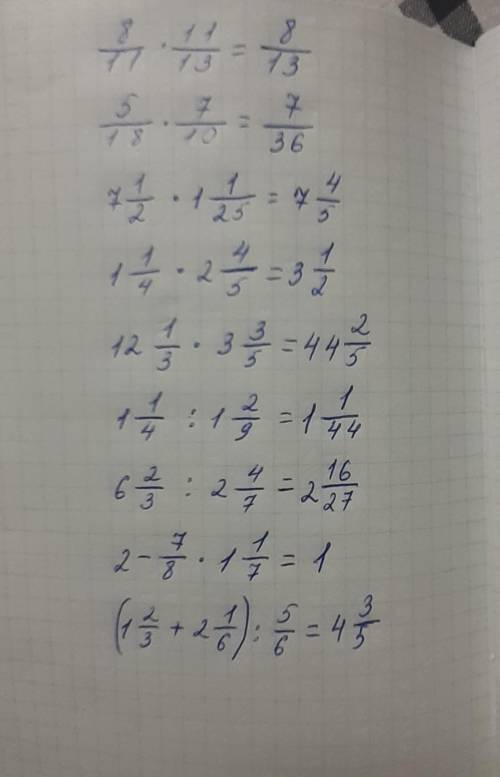 8/11 · 11/13 = 8/13
5/18 · 7/10 = 7/36
7 1/2 · 1 1/25 = 7 4/5
1 1/4 · 2 4/5 = 3 1/2
12 1/3 · 3 3/5 = 44 2/5
1 1/4 : 1 2/9 = 1 1/44
6 2/3 : 2 4/7 = 2 16/27
2 - 7/8 · 1 1/7 = 1
(1 2/3 + 2 1/6) : 5/6 = 4 3/5